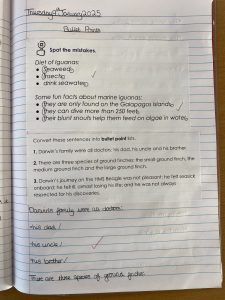 Thursday 9th January 2025
Bullet Points
Spot the mistakes.
Diet of Iguanas:
seaweed
insects
drink seawater
Some fun facts about marine iguanas:
they are only found on the Galapagos Islands
they can dive more than 250 feet
their blunt snouts help them feed on algae in water
Convert these sentences into bullet point lists.
1. Darwin's family were all doctors: his dad, his uncle and his brother.
2. There are three species of ground finches: the small ground finch, the
medium ground finch and the large ground finch.
3. Darwin's journey on the HMS Beagle was not pleasant: he felt seasick
onboard; he fell ill, almost losing his life; and he was not always
respected for his discoveries.
Darwins family were all doctors:
his dad
his uncle
his brother
There are three species of ground finches